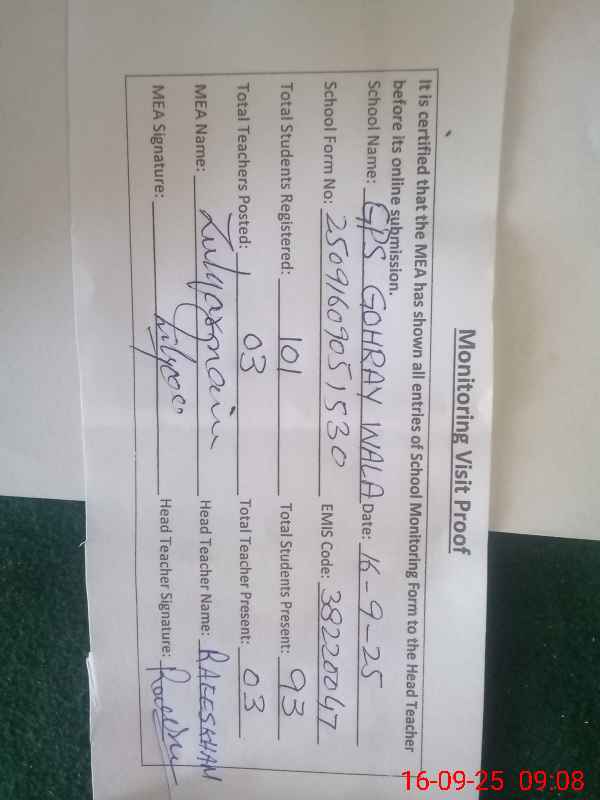 Monitoring Visit Proof
It is certified that the MEA has shown all entries of School Monitoring Form to the Head Teacher
before its online submission.
School Name: GPS GOHRAY WALA Date: 16-9-25
School Form No: 25091609051530 EMIS Code: 38220047
Total Students Registered: 101 Total Students Present: 93
Total Teachers Posted: 03 Total Teacher Present: 03
MEA Name: Head Teacher Name:
MEA Signature: Head Teacher Signature:
16-09-25 09:08